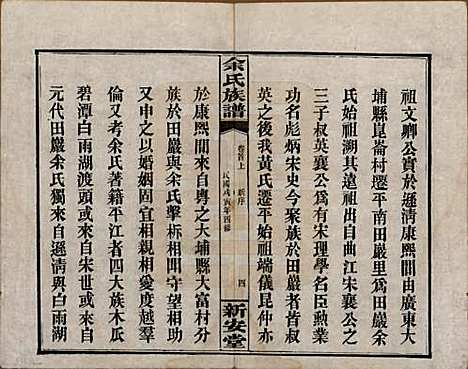 祖文卿公實於遜清康熙間由廣東大
埔縣崑崙村遷平南田嚴里為田嚴余
氏始祖溯其所自出自曲江宋襄公之
三子叔英襄公為有宋理學名臣勲業
功名彪炳宋史今聚族於田嚴者皆叔
英之後我黃氏遷平始祖端儀昆仲亦
余氏族譜
卷首上
新序
民國戊寅年四修
四
新安堂
於康熙間來自粵之大埔縣大富村分
族於田嚴與余氏擊柝相聞守望相助
又申之以婚姻固宜相親相愛度越羣
倫又考余氏著籍平江者四大族木瓜
碧潭白雨湖渡頭或來自宋世或來自
元代田嚴余氏獨來自遜清與白雨湖